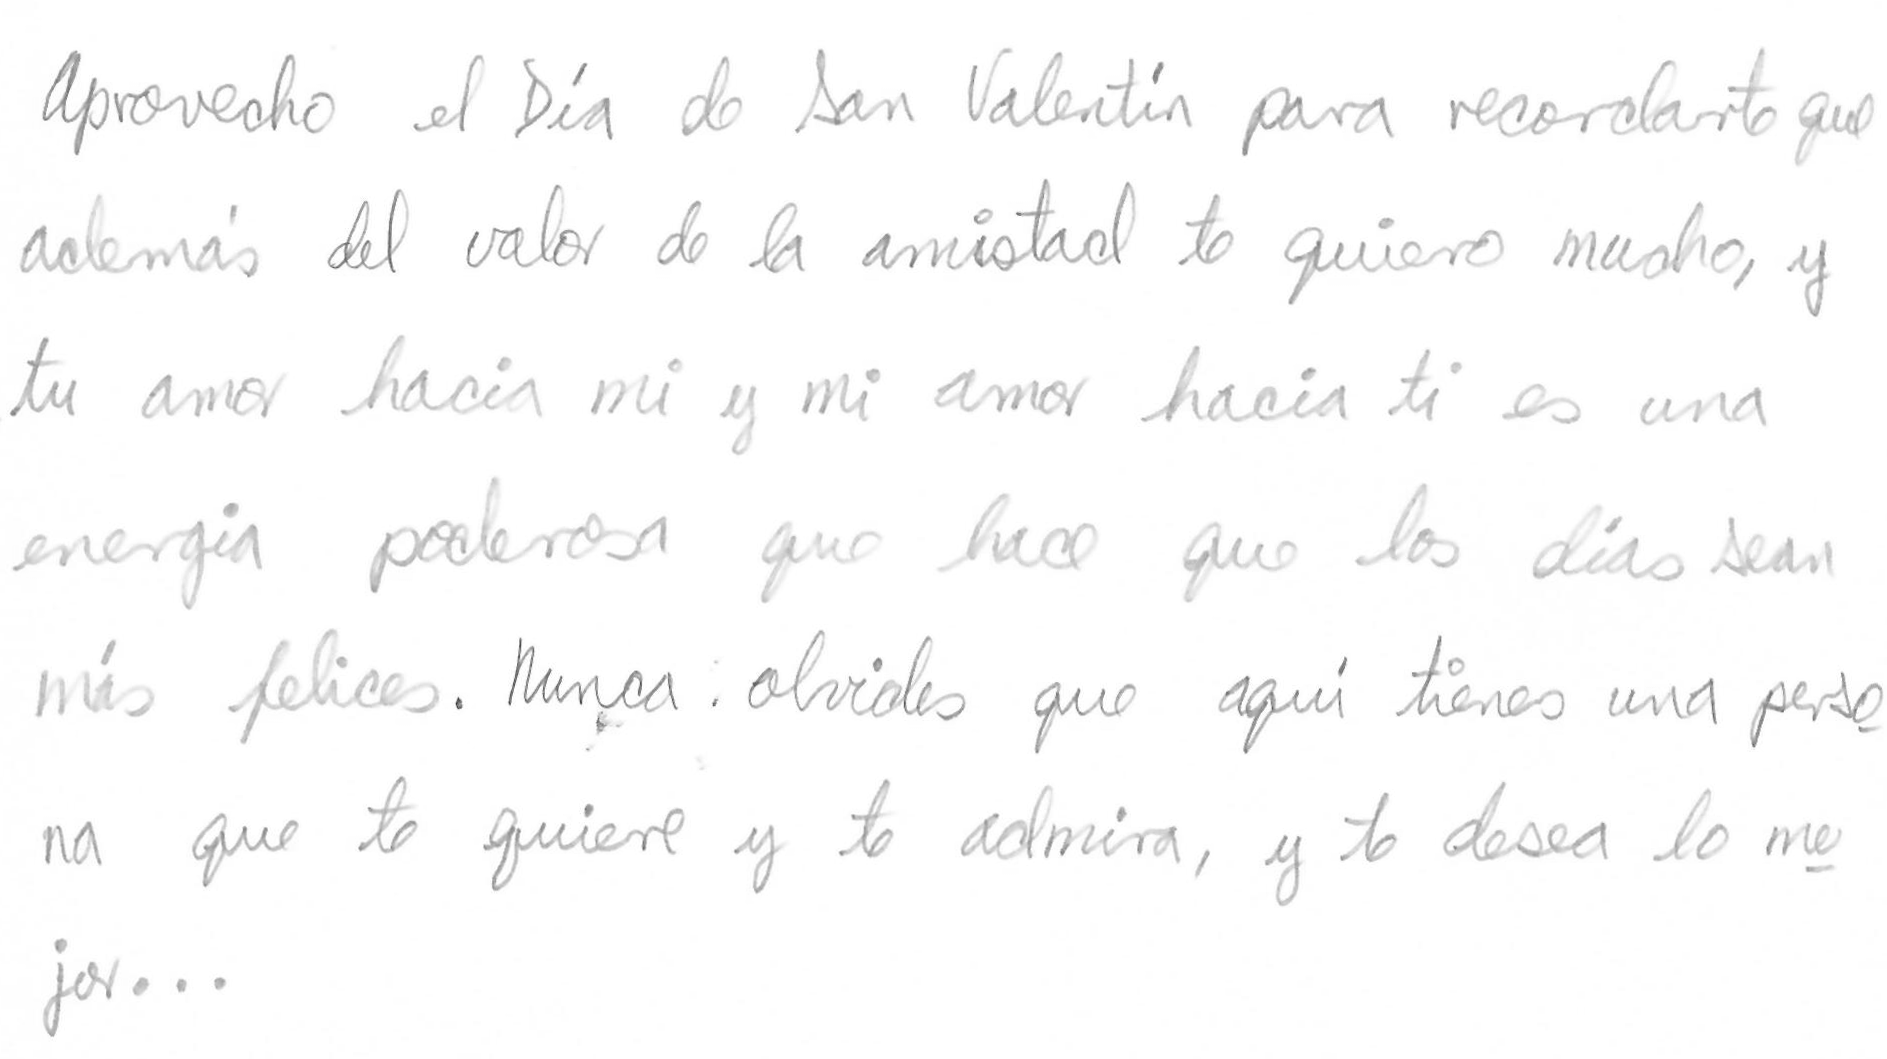 Aprovecho el Día de San Valentín para recordarte que
además del valor de la amistad te quiero mucho, y
tu amor hacia mi y mi amor hacia ti es una
energia poderosa que hace que los días sean
más felices. Nunca olvides que aquí tienes una perso
na que te quiere y te admira, y te desea lo me
jor...